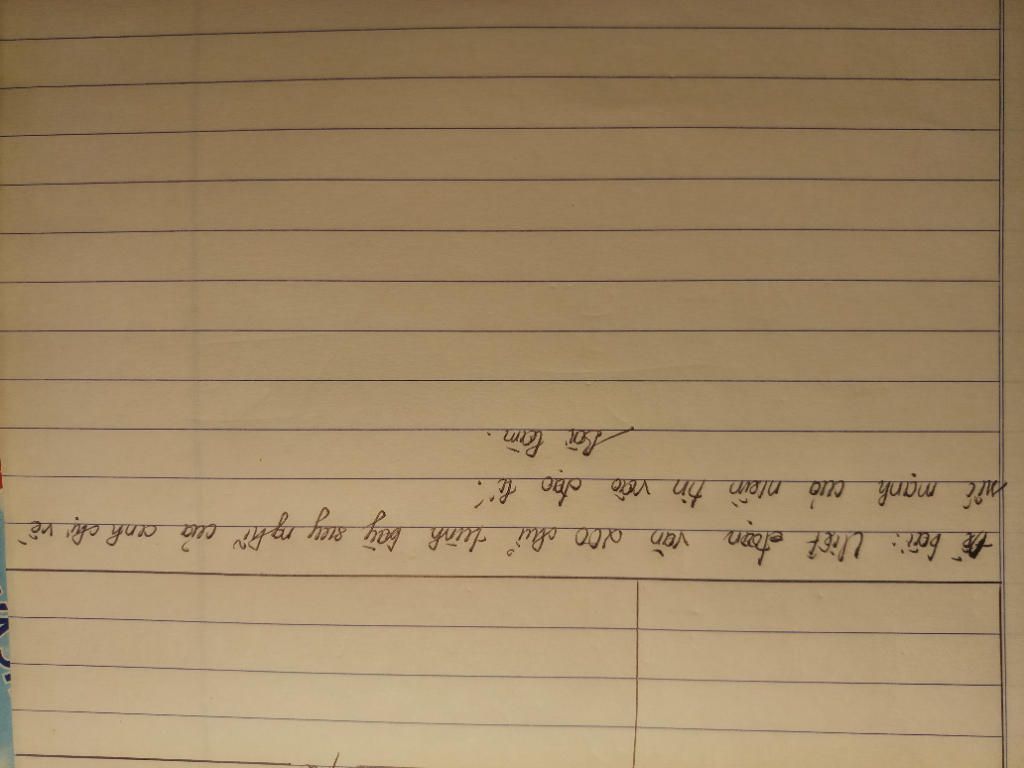 Đề bài: Viết đoạn văn 200 chữ trình bày suy nghĩ của anh chị về
sức mạnh của niềm tin vào đạo lí.
Bài làm.